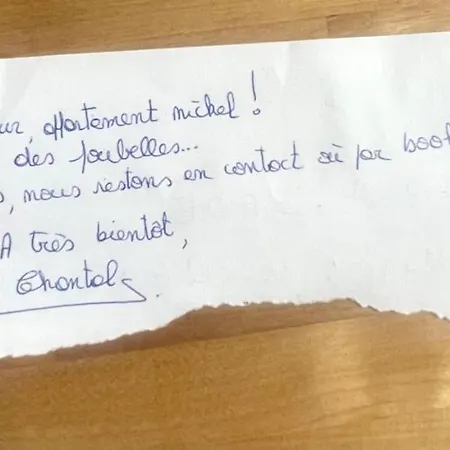 ur, appartement nickel !
des poubelles...
s, nous restons en contact où par boo
A très bientôt,
Chantal